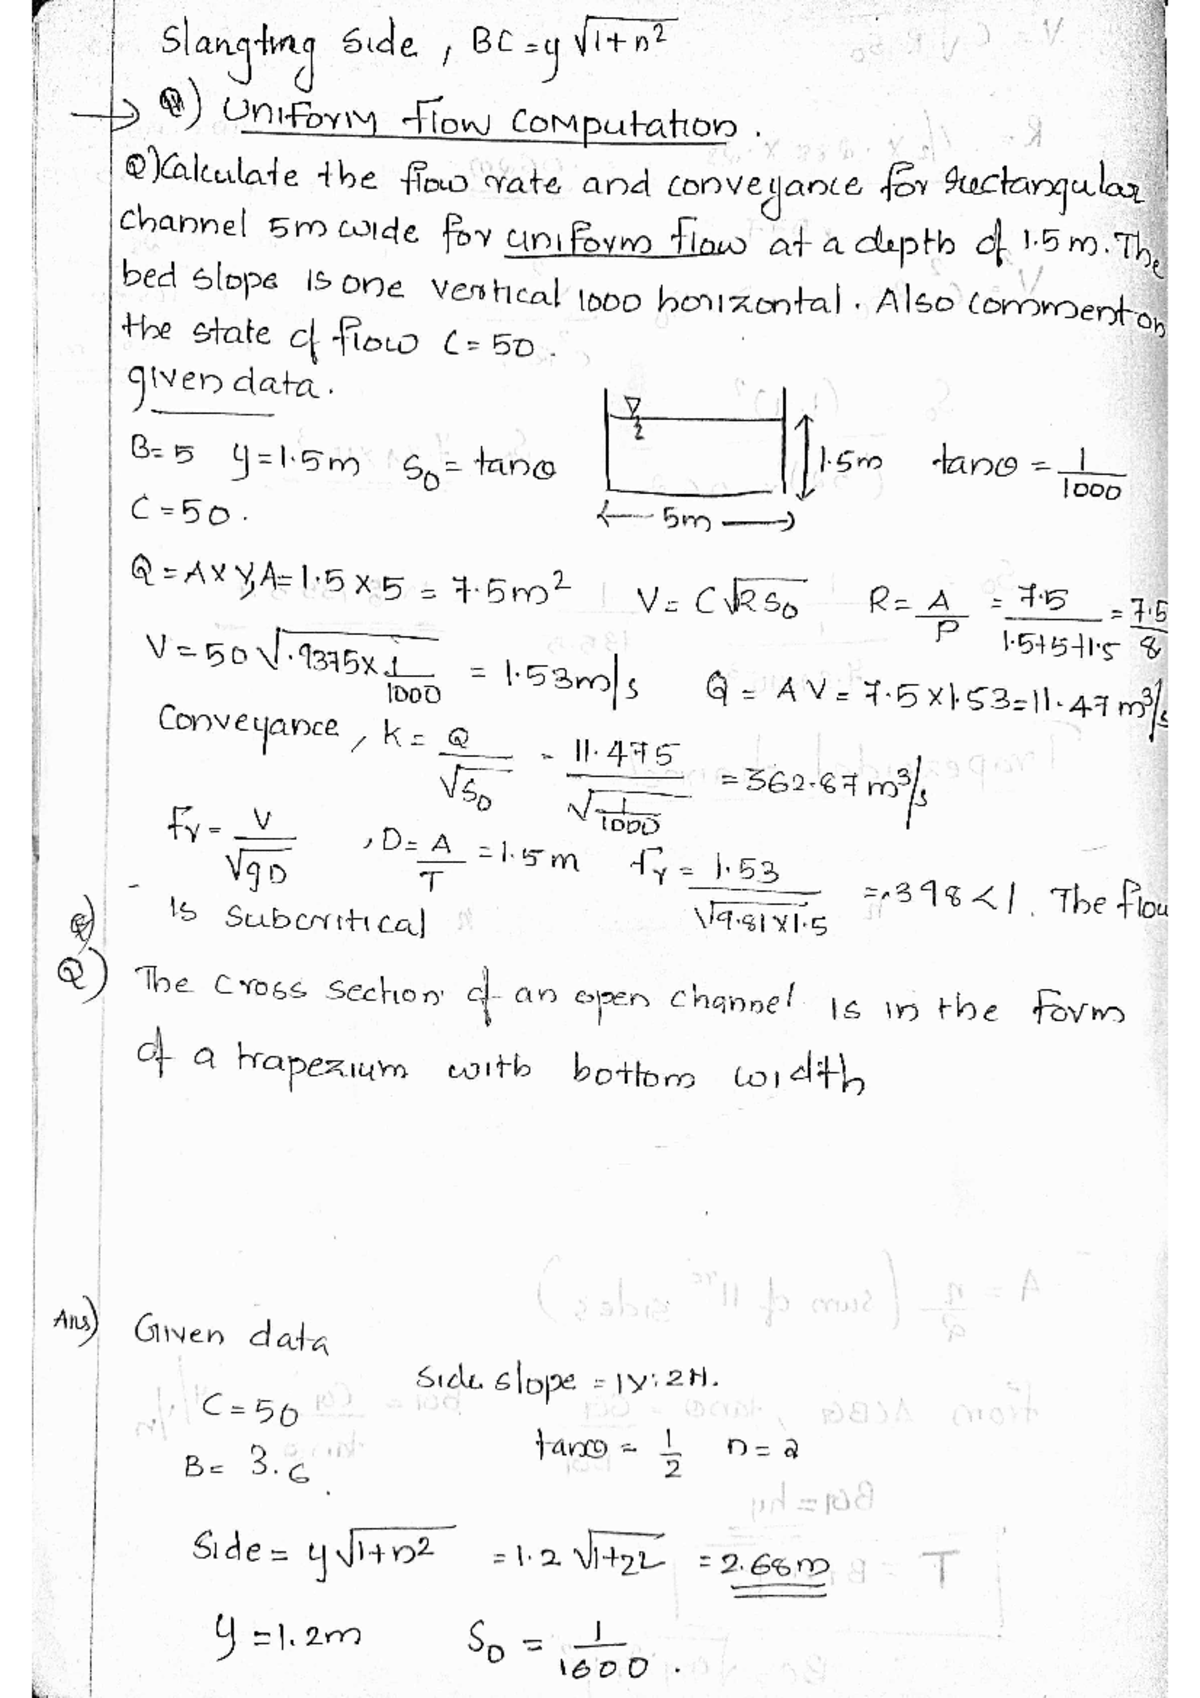 Slangting side, BC = y √1+n²
→ Q) Uniform flow computation.
Q) Calculate the flow rate and conveyance for rectangular
channel 5m wide for uniform flow at a depth of 1.5 m. The
bed slope is one vertical 1000 horizontal. Also comment on
the state of flow C = 50.
given data.
B= 5 y = 1.5m S₀ = tanθ
1.5m
tanθ = 1/1000
C = 50.
5m
Q = A x V, A = 1.5 x 5 = 7.5m² V = C√RS₀ R = A/P = 7.5/1.5+5+1.5 = 7.5/8
V = 50 √.9375 x 1/1000 = 1.53m/s Q = AV = 7.5 x 1.53 = 11.47 m³/s
Conveyance, K = Q/√S₀ = 11.475/√1/1000 = 362.87 m³/s
Fr = V/√gD , D = A/T = 1.5 m Fr = 1.53/√9.81x1.5 = .398 < 1. The flow
is subcritical
Q) The cross section of an open channel is in the form
of a trapezium with bottom width
Ans) Given data
Side slope = 1V:2H.
C = 50
tanθ = 1/2 n = 2
B = 3.6
Side = y √1+n² = 1.2 √1+2² = 2.68m
y = 1.2m S₀ = 1/1600.